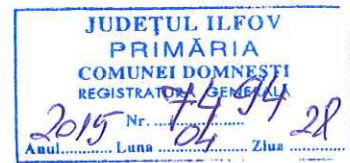 JUDEȚUL ILFOV
PRIMĂRIA
COMUNEI DOMNEȘTI
REGISTRATURA GENERALĂ
Nr. 7494
Anul 2015 Luna 04 Ziua 28